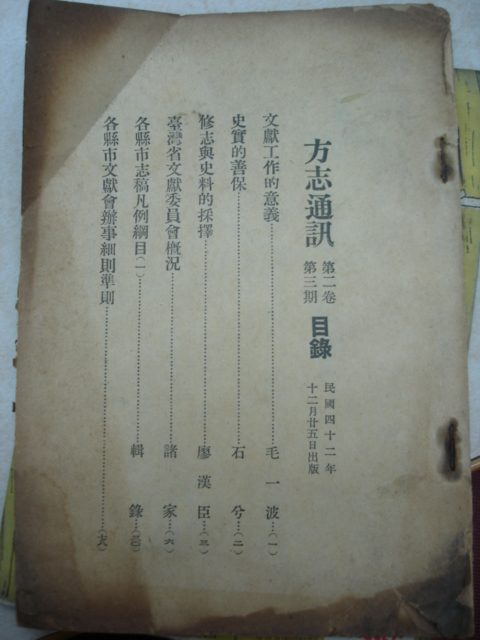 方志通訊 第二卷 第三期 目錄 民國四十二年 十二月廿五日出版
文獻工作的意義……毛一波…(一)
史實的善保……石兮…(二)
修志與史料的採擇……廖漢臣…(三)
臺灣省文獻委員會概況……諸家…(六)
各縣市志稿凡例綱目(一)……輯錄…
各縣市文獻會辦事細則準則……